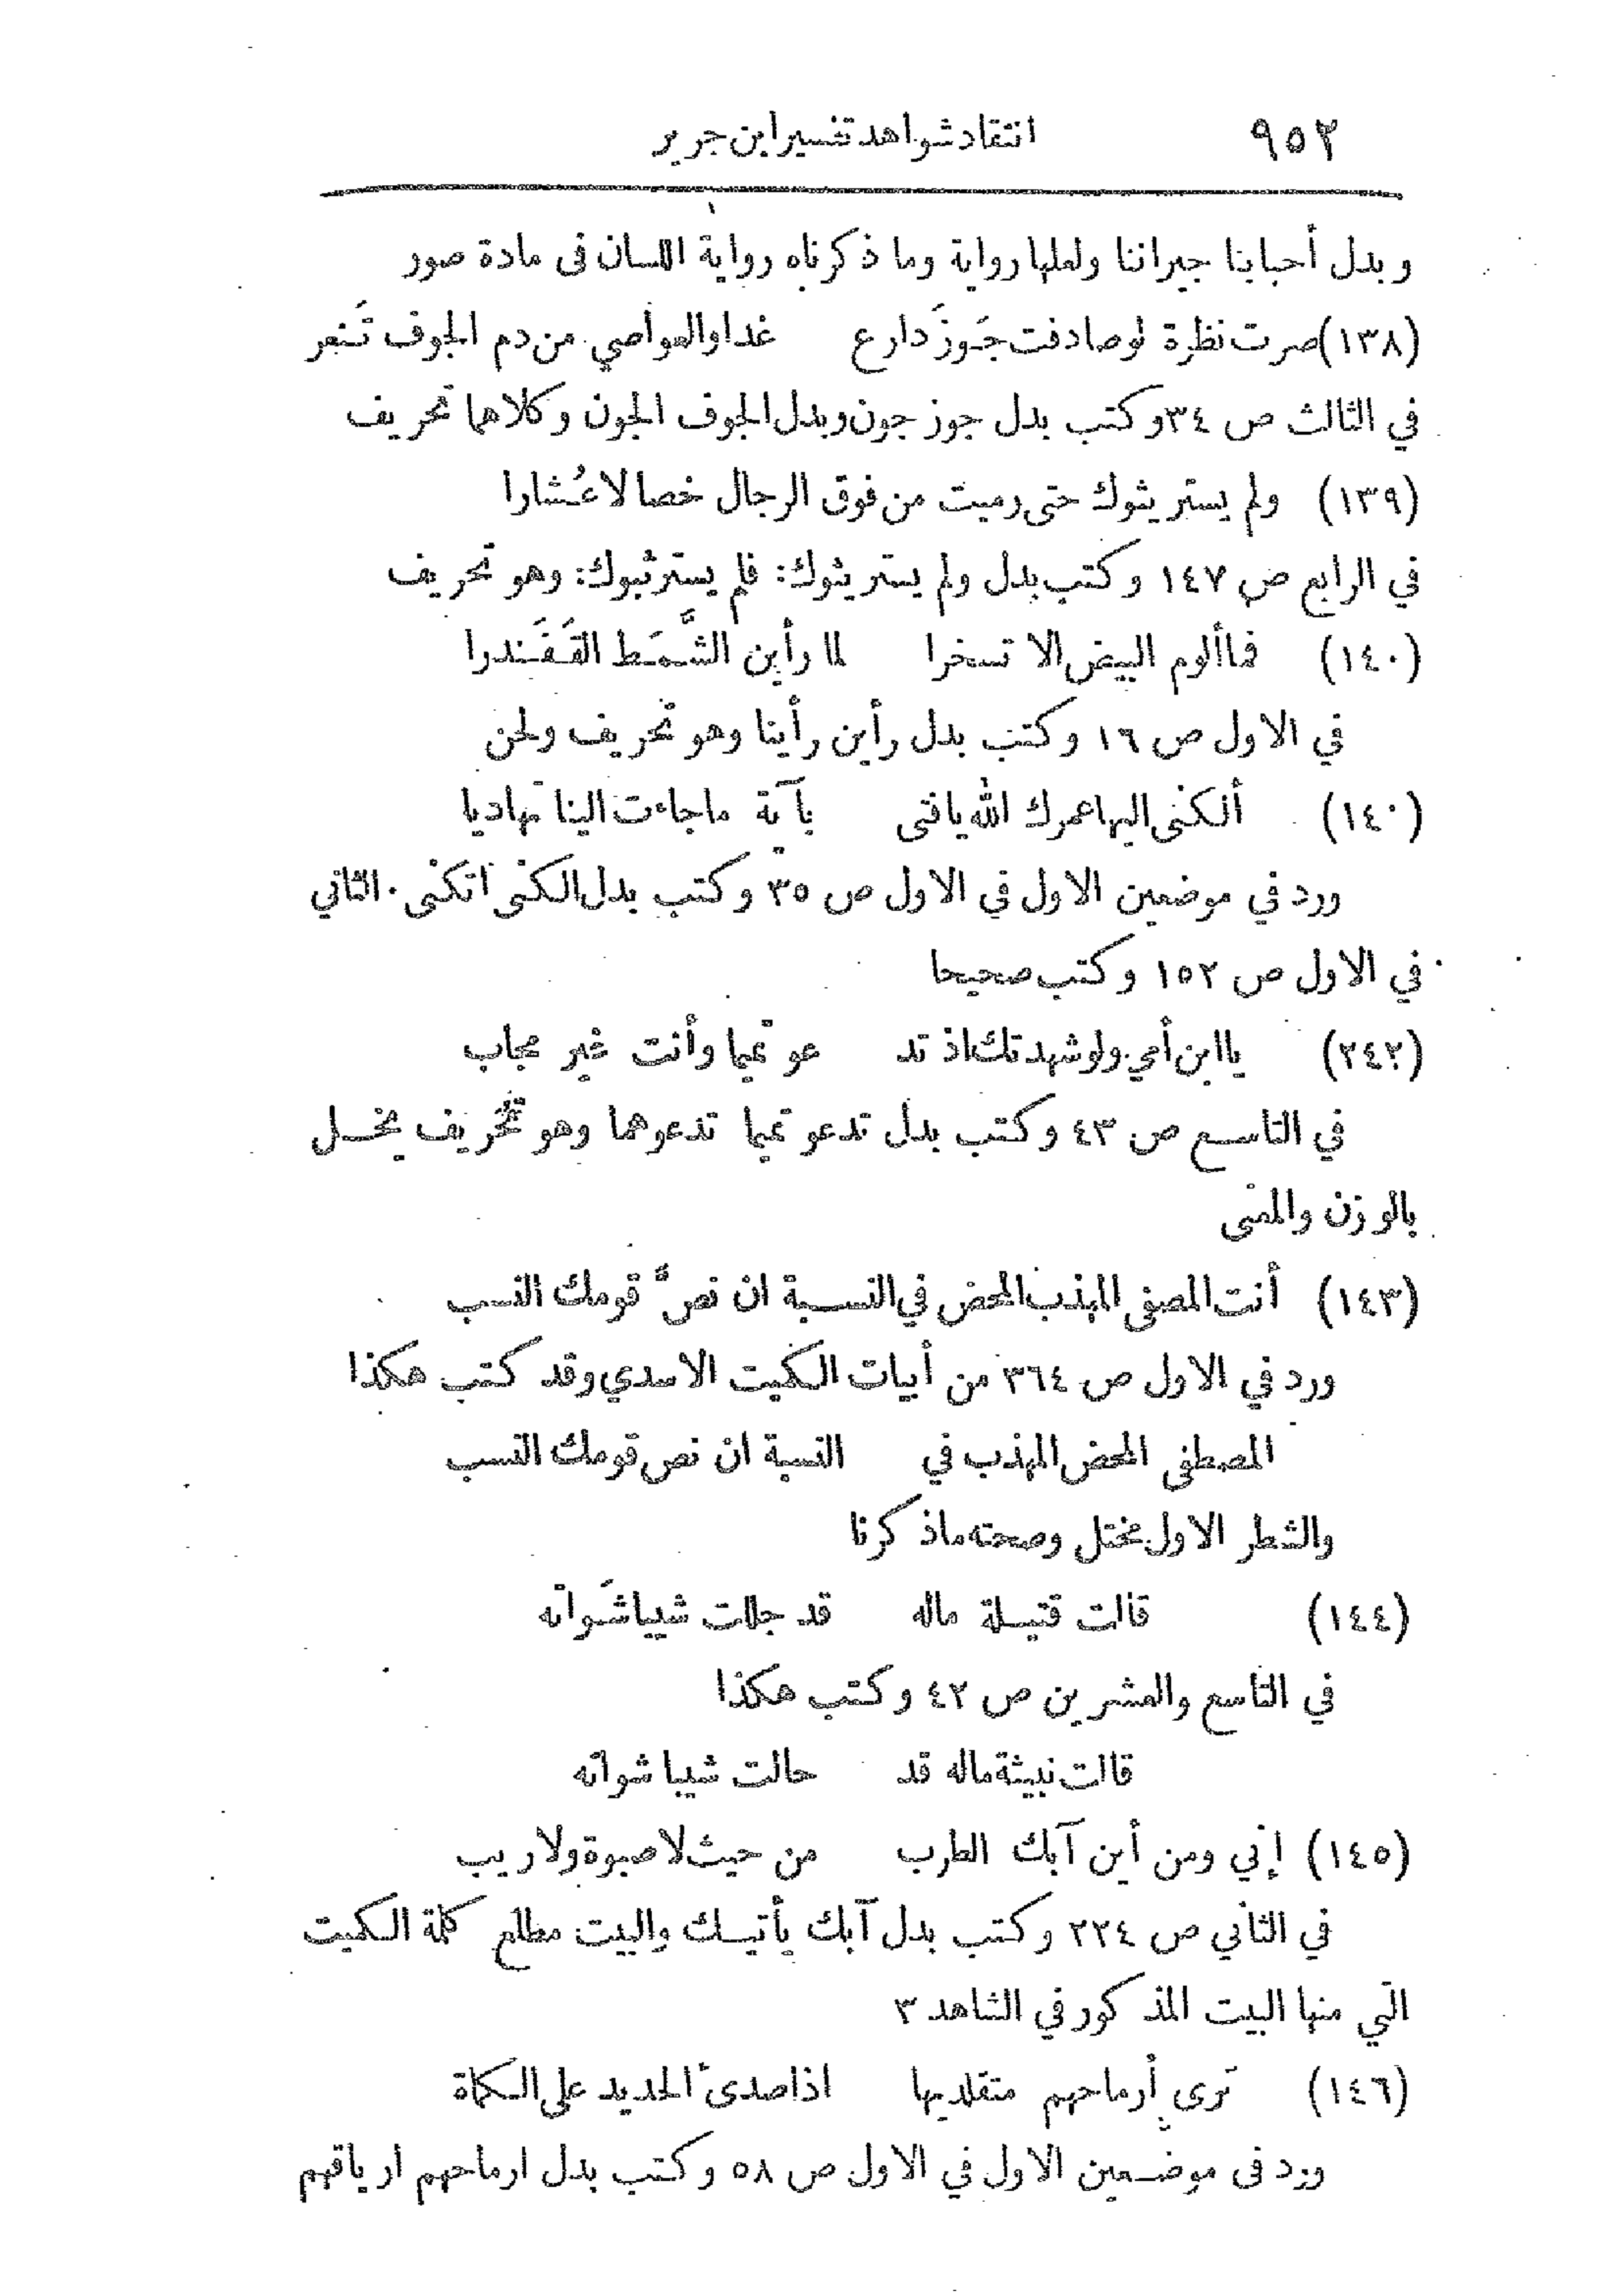 ٩٥٢ انتقاد شواهد تفسير ابن جرير
وبدل أحبابنا جيراننا ولعلها رواية وما ذكرناه رواية اللسان فى مادة صور
(١٣٨) صرت نظرة لو صادفت جَوزَ دارع غدا والعواصي من دم الجوف تَنعر
في الثالث ص ٣٤ وكتب بدل جوز جون وبدل الجوف الجون وكلاهما تحريف
(١٣٩) ولم يستريثوك حتى رميت من فوق الرجال خصالا عُشارا
في الرابع ص ١٤٧ وكتب بدل ولم يستريثوك: فلم يسترثبوك: وهو تحريف
(١٤٠) فما ألوم البيض الا تسخرا لما رأين الشَّمَط القَفَندرا
في الاول ص ١٦ وكتب بدل رأين رأينا وهو تحريف ولحن
(١٤٠) ألكنى اليها عمرك الله يا فتى بآية ما جاءت الينا تهاديا
ورد في موضعين الاول في الاول ص ٣٥ وكتب بدل الكنى اتكنى . الثاني
في الاول ص ١٥٢ وكتب صحيحا
(٢٤٢) يا ابن أمي ولو شهدتك اذ تد عو تميما وأنت غير مجاب
في التاسع ص ٤٣ وكتب بدل تدعو تميما تدعوهما وهو تحريف يخل
بالوزن والمعنى
(١٤٣) أنت المصفى المهذب المحض في النسبة ان نصّ قومك النسب
ورد في الاول ص ٣٦٤ من أبيات الكميت الاسدي وقد كتب هكذا
المصطفى المحض المهذب في النسبة ان نص قومك النسب
والشطر الاول مختل وصحته ما ذكرنا
(١٤٤) قالت قتيلة ماله قد جللت شيبا شَواته
في التاسع والعشرين ص ٤٢ وكتب هكذا
قالت نبيثة ماله قد حالت شيبا شواته
(١٤٥) إني ومن أين آبك الطرب من حيث لا صبوة ولا ريب
في الثاني ص ٢٢٤ وكتب بدل آبك يأتيك والبيت مطلع كلمة الكميت
التي منها البيت المذكور في الشاهد ٣
(١٤٦) ترى أرماحهم متقلديها اذا صدئ الحديد على الكماة
ورد فى موضعين الاول في الاول ص ٥٨ وكتب بدل ارماحهم ارباقهم